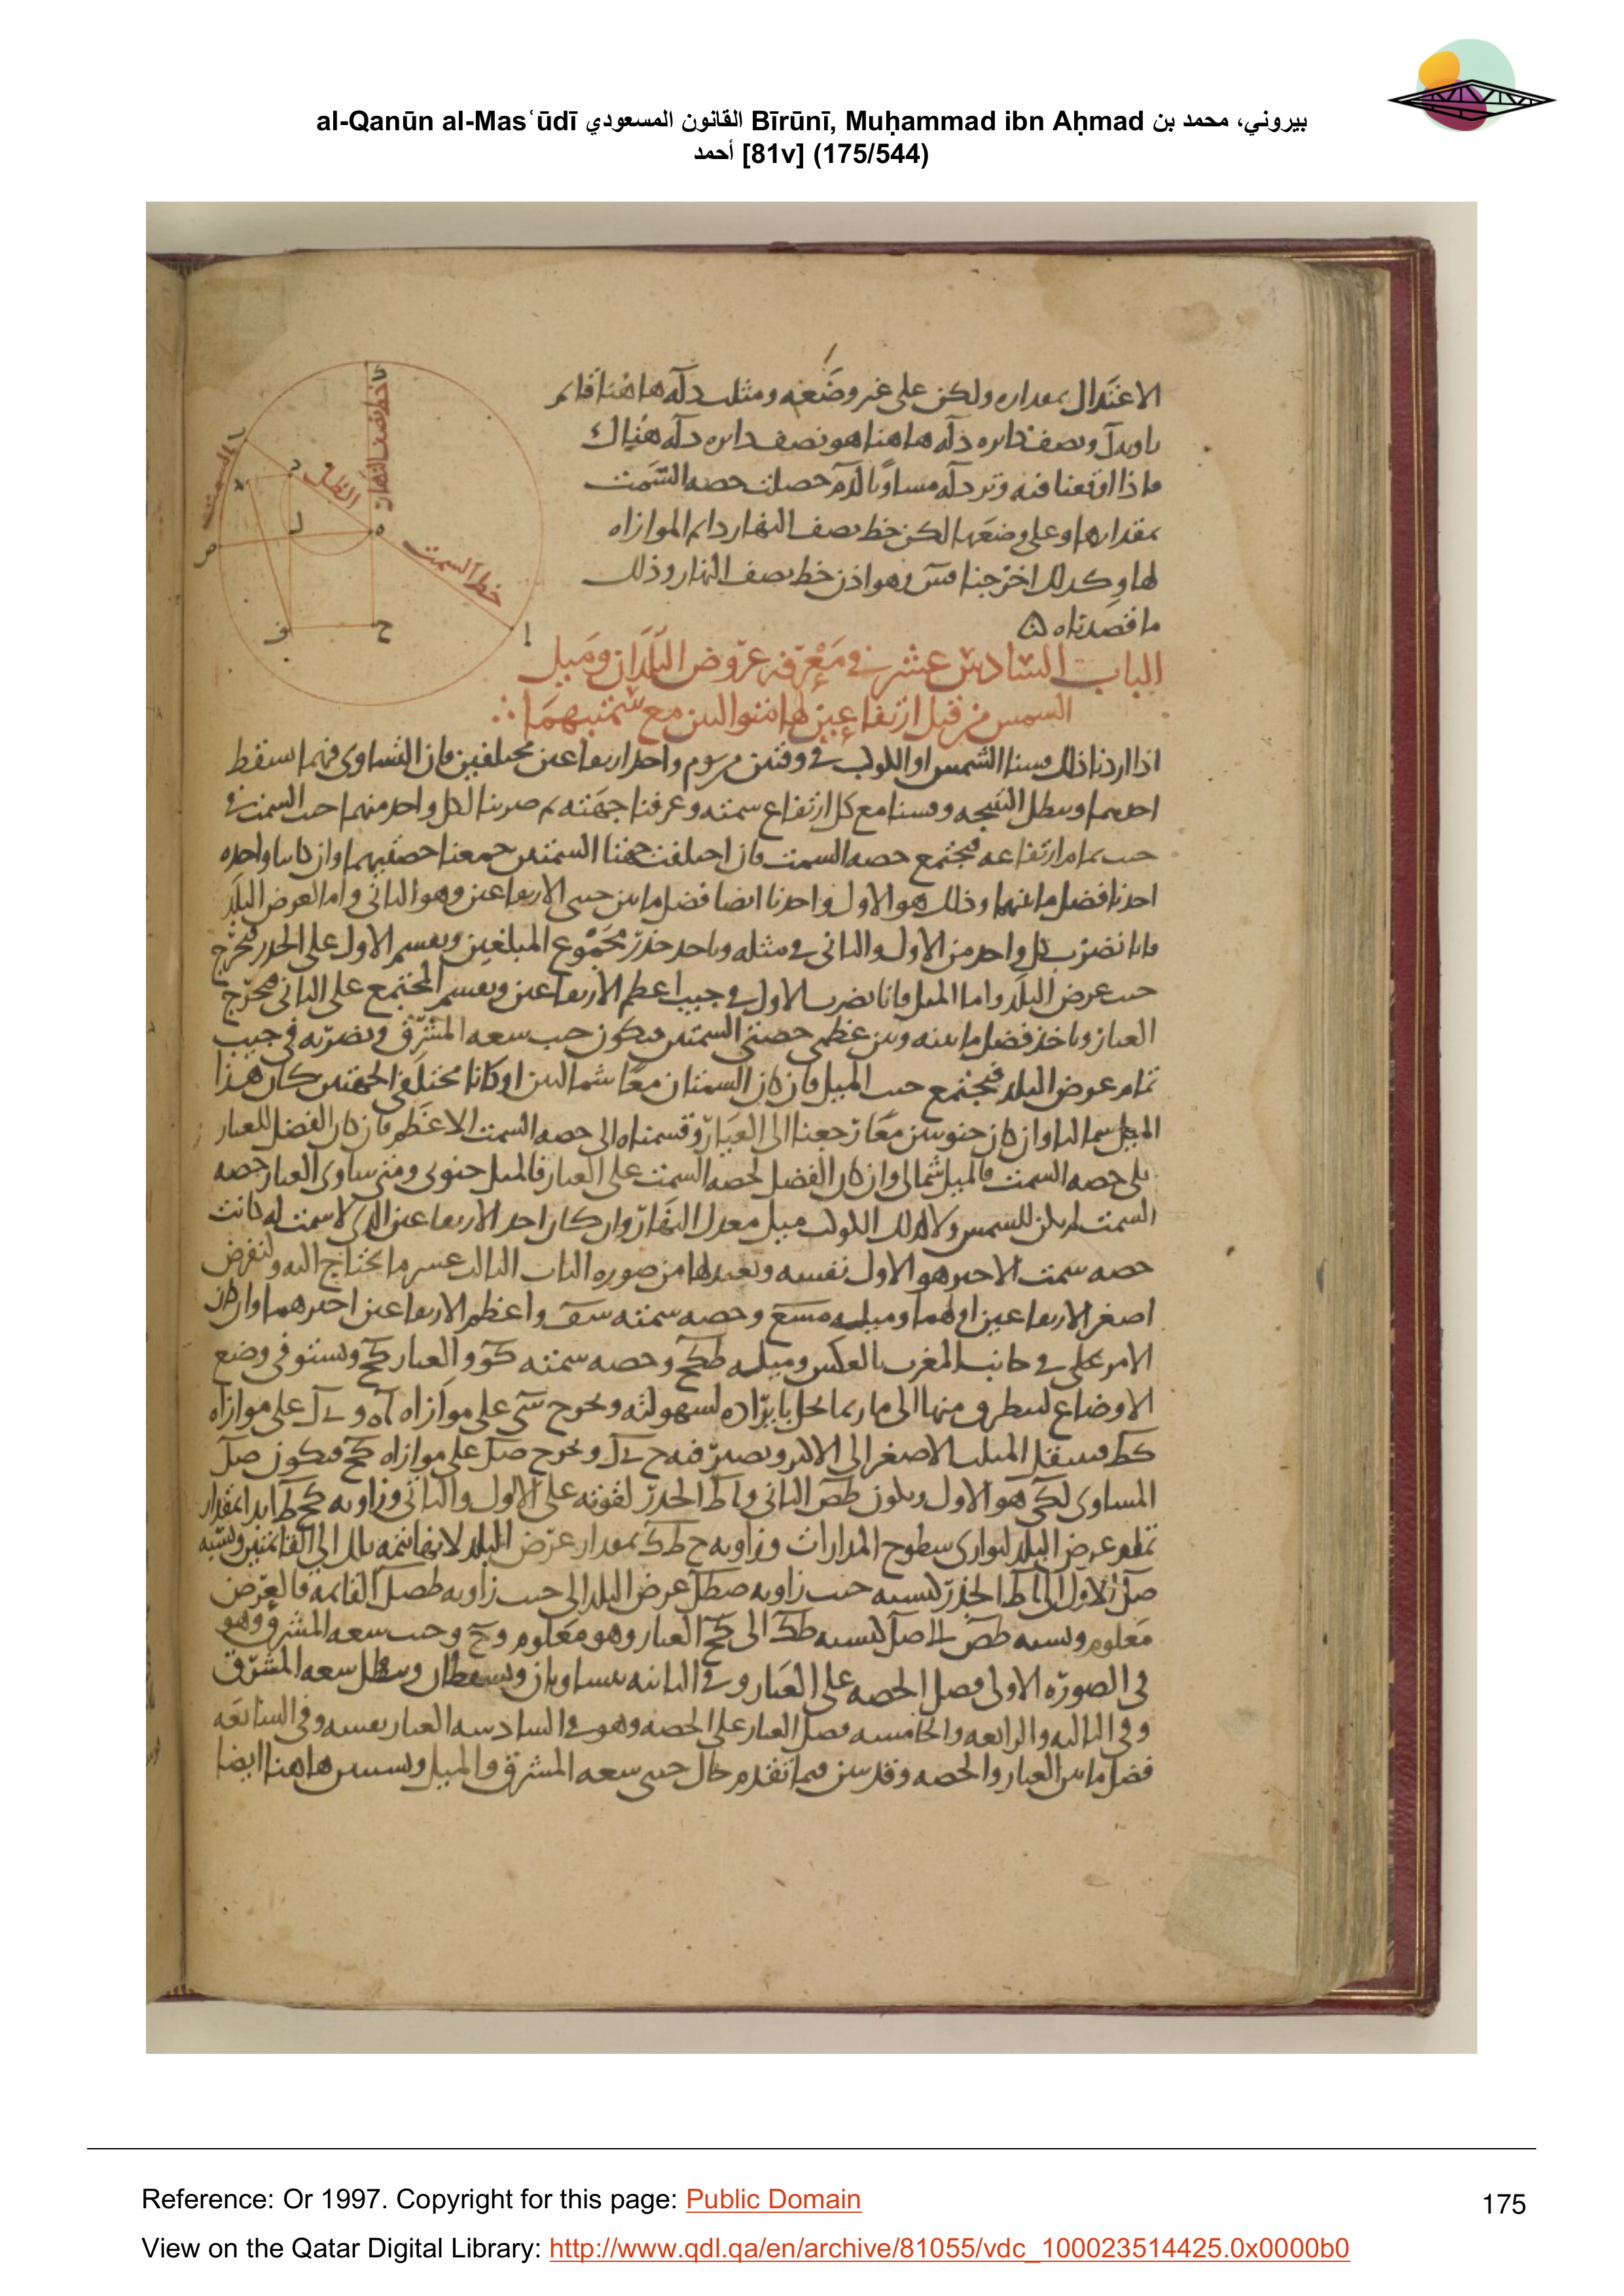 al-Qanūn al-Masʿūdī القانون المسعودي Bīrūnī, Muḥammad ibn Aḥmad بيروني، محمد بن
أحمد [81v] (175/544)
الاعتدال بمقداره ولكن على غير وضعه ومثلث دله هاهنا قائم
ونصف دائره دله هاهنا هو نصف دائره دله هناك
فاذا اوقعنا فيه وتر دله مساويا حصلت حصه السمت
بمقدارها وعلى وضعها لكن خط نصف النهار دائم الموازاه
لها وكذلك اخرجنا وهو اذن خط نصف النهار وذلك
ما قصدناه
خط نصف النهار
السمت
الظل
خط السمت
الباب السادس عشر في معرفه عروض البلدان وميل
الشمس من قبل ارتفاعين لها متواليين مع سمتيهما
اذا اردنا ذلك قسنا الشمس او الكوكب في وقتين من يوم واحد ارتفاعين مختلفين فان التساوى فيهما اسقط
احدهما وبطل النتيجه وقسنا مع كل ارتفاع سمته وعرفنا جهته ثم ضربنا لكل واحد منهما جيب السمت في
جيب تمام ارتفاعه فيجتمع حصه السمت فان اختلفت جهتا السمتين جمعنا حصتيهما وان كانتا واحده
اخذنا فضل ما بينهما وذلك هو الاول واخذنا ايضا فضل ما بين جيبى الارتفاعين وهو الثانى واما لعرض البلد
فانا نضرب كل واحد من الاول والثانى في مثله وناخذ جذر مجموع المبلغين ونقسم الاول على الجذر فيخرج
جيب عرض البلد واما الميل فانا نضرب الاول في جيب اعظم الارتفاعين ونقسم المجتمع على الثانى فيخرج
العيار وناخذ فضل ما بينه وبين عظمى حصتى السمتين فيكون جيب سعه المشرق ونضربه في جيب
تمام عرض البلد فيجتمع جيب الميل فان كان السمتان معا شماليين او كانا مختلفى الجهتين كان هذا
الميل شماليا وان كان جنوبيين معا رجعنا الى العيار وقسمناه الى حصه السمت الاعظم فان كان الفضل للعيار
على حصه السمت فالميل شمالى وان كان الفضل لحصه السمت على العيار فالميل جنوبى ومتى ساوى العيار حصه
السمت لم يكن للشمس ولا لذلك الكوكب ميل معدل النهار وان كان احد الارتفاعين الذى لا سمت له كانت
حصه سمت الاخير هو الاول نفسه ونعيدها من صوره الباب الثالث عشر ما يحتاج اليه ولنفرض
اصغر الارتفاعين اولهما ومثلثه مسع وحصه سمته سف واعظم الارتفاعين اخيرهما وان كان
الامر على في جانب المغرب بالعكس ومثلثه طكح وحصه سمته كو والعيار كح ونستوفى وضع
الاوضاع ليتطرق منها الى ما ربما نخل بايراده لسهولته ونخرج سى على موازاه اه و ل على موازاه
كط فينتقل المثلث الاصغر الى الاكبر ويصير فيه ح ل ونخرج صل على موازاه كح فيكون صل
المساوى لكى هو الاول ويكون طص الثانى و طل الجذر لقوته على الاول والثانى وزاويه كح ط ابدا بمقدار
تمام عرض البلد لتوازى سطوح المدارات وزاويه ح ط ك بمقدار عرض البلد لانها تتمه تلك الى القائمتين ونسبه
صل الاول الى طل الجذر كنسبه جيب زاويه صطل عرض البلد الى جيب زاويه طصل القائمه فالعرض
معلوم ونسبه طص الى صل كنسبه طك الى كح العيار وهو معلوم و ح و جيب سعه المشرق وهو
فى الصوره الاولى فضل الحصه على العيار وفي الثانيه متساويان ويسقطان وتبطل سعه المشرق
وفى الثالثه والرابعه والخامسه فضل العيار على الحصه وهو في السادسه العيار نفسه وفى السابعه
فضل ما بين العيار والحصه وقد تبين فيما تقدم حال جيبى سعه المشرق والميل ويتبين هاهنا ايضا
Reference: Or 1997. Copyright for this page: Public Domain
175
View on the Qatar Digital Library: http://www.qdl.qa/en/archive/81055/vdc_100023514425.0x0000b0